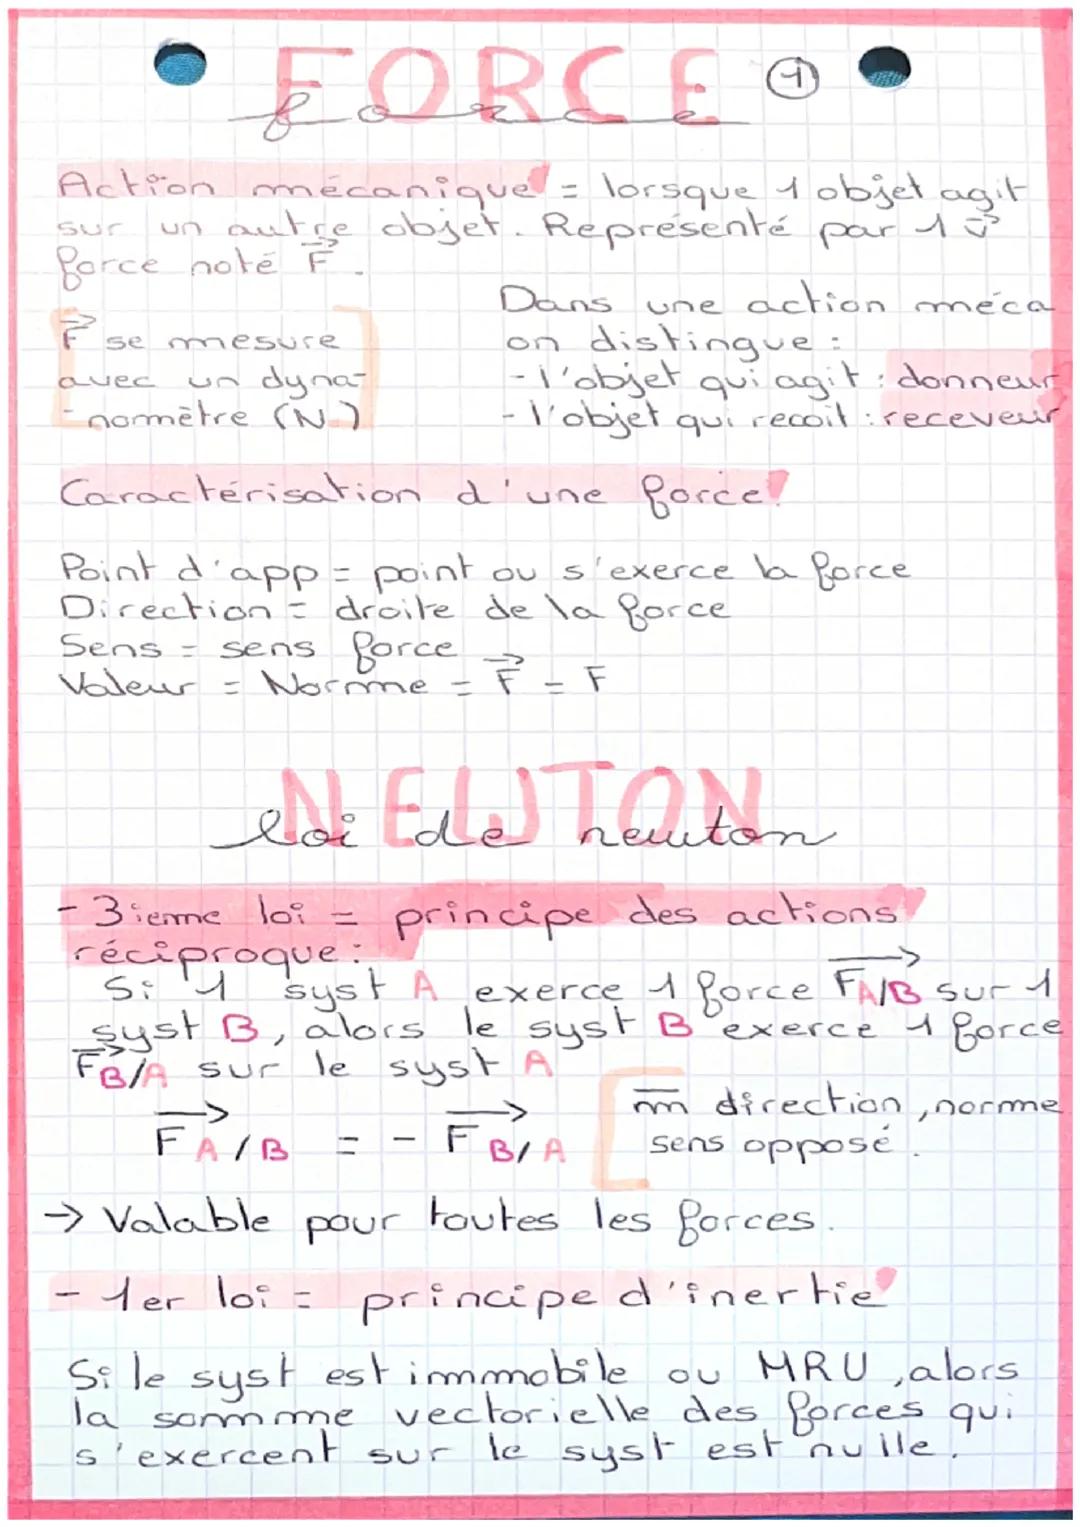 FORCE 1
force
Action mécanique = lorsque 1 objet agit
sur un autre objet. Représenté par 1 v
force noté F.
F se mesure
avec un dyna-
-nommètre (N.)
Dans une action méca
on distingue :
- l'objet qui agit : donneur
- l'objet qui recoit : receveur
Caractérisation d'une force
Point d'app = point ou s'exerce la force
Direction = droite de la force
Sens = sens force
Valeur = Normme = F = F
NEWTON
loi de newton
- 3ienme loi = principe des actions
réciproque :
Si 1 syst A exerce 1 force FA/B sur 1
syst B, alors le syst B exerce 1 force
FB/A sur le syst A
F A/B = - F B/A
m̅ direction, normme
sens opposé.
→ Valable pour toutes les forces.
- 1er loi = principe d'inertie
Si le syst est immobile ou MRU, alors
la sommme vectorielle des forces qui
s'exercent sur le syst est nulle.